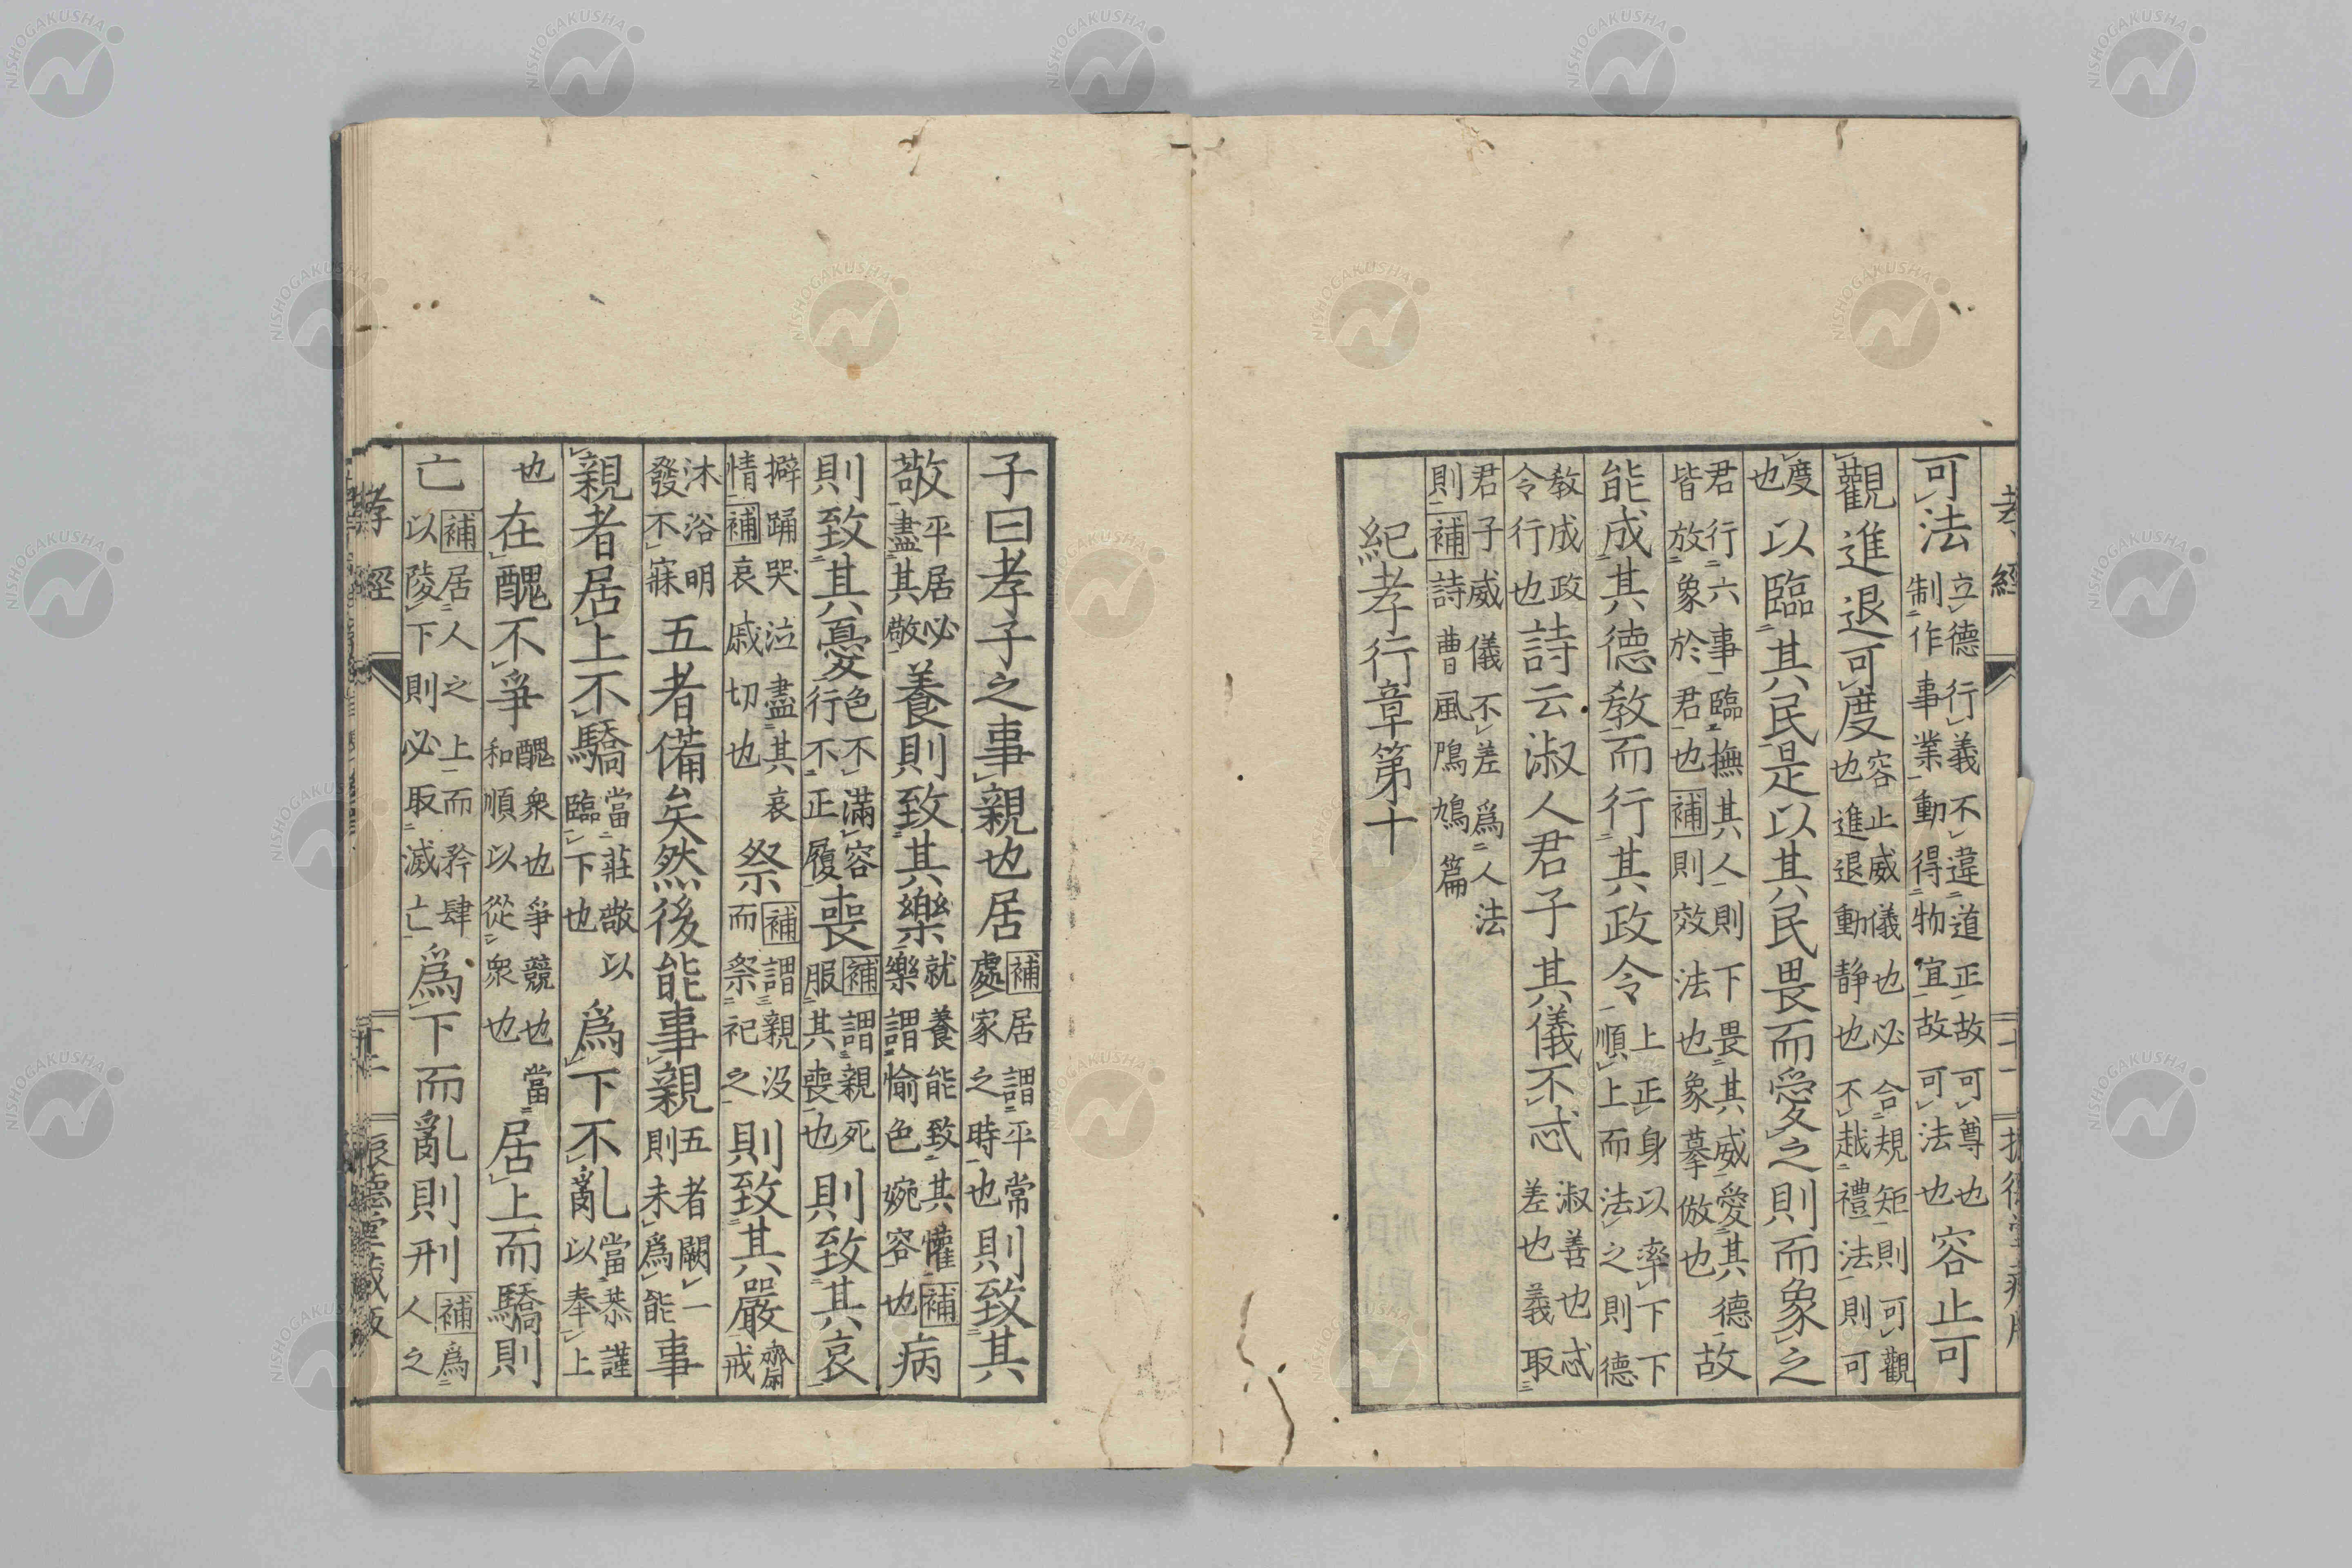 孝經 十一
可法立德行義不違道正故可尊也制作事業動得物宜故可法也容止可
觀進退可度容止威儀也必合規矩則可觀也進退動靜也不越禮法則可
度也以臨其民是以其民畏而愛之則而象之
君行六事臨撫其人則下畏其威愛其德皆放象於君也補則效法也象摹倣也故
能成其德教而行其政令上正身以率下下順上而法之則德
教成政令行也詩云淑人君子其儀不忒淑善也忒差也義取
君子威儀不差爲人法則補詩曹風鳲鳩篇
紀孝行章第十
子曰孝子之事親也居補居謂平常處家之時也則致其
敬平居必盡其敬養則致其樂就養能致其懽補樂謂愉色婉容也病
則致其憂色不滿容行不正履喪補謂親死服其喪也則致其哀
擗踊哭泣盡其哀情補哀戚切也祭補謂親没而祭祀之則致其嚴齋戒
沐浴明發不寐五者備矣然後能事親五者闕一則未爲能事
親者居上不驕當莊敬以臨下也爲下不亂當恭謹以奉上
也在醜不爭醜衆也爭競也當和順以從衆也居上而驕則
亡補居人之上而矜肆以陵下則必取滅亡爲下而亂則刑補爲人之
孝經 藏版